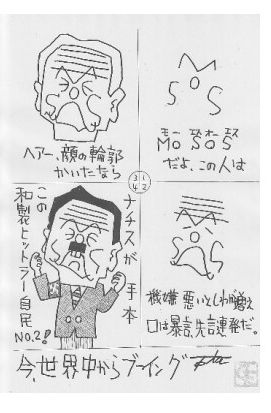 M
O
S S
Mo SOS
だよ、この人は
機嫌悪いとしわが増え
口は暴言、失言連発だ。
ヘアー、顔の輪郭
かいたなら
3 1
4 2
ナチスが手本
この
和製ヒットラー自民
NO.2!
今、世界中からブーイング